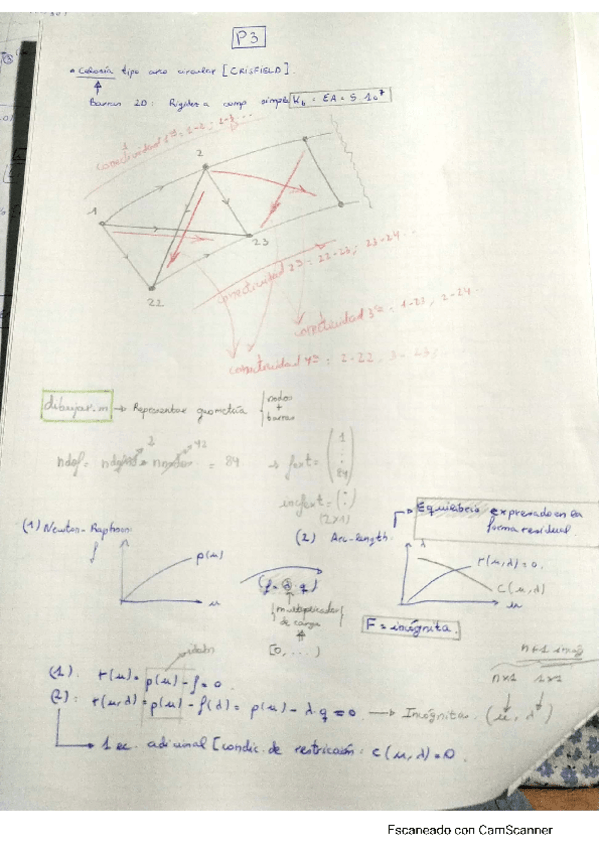 P3
• Celosía tipo arco circular [CRISFIELD].
Barras 2D: Rigidez a comp simple K_b = EA = 5·10⁷
conectividad 1ª = 1-2; 2-3...
2
1
23
22
conectividad 2ª: 22-23; 23-24...
conectividad 3ª = 1-23, 2-24...
conectividad 4ª: 2-22, 3-23;
dibujar.m → Representar geometría { nodos + barras
ndof = = 84 → fext = (1 ⋮ 84)
2 42
incfext = (:)
(2x1)
(1) Newton-Raphson
(2) Arc-length.
Equilibrio expresado en la forma residual.
f p(u) u
(f = λ q)
multiplicador de carga
[0, ...)
λ r(u,λ)=0. c(u,λ) u
F = incógnita.
(1): r(u) = p(u) - f = 0
n+1 incóg
nx1 1x1
(2): r(u,λ) = p(u) - f(λ) = p(u) - λ·q = 0 → Incógnitas (u, λ)
→ 1 ec. adicional [condic. de restricción: c(u,λ) = 0
Escaneado con CamScanner